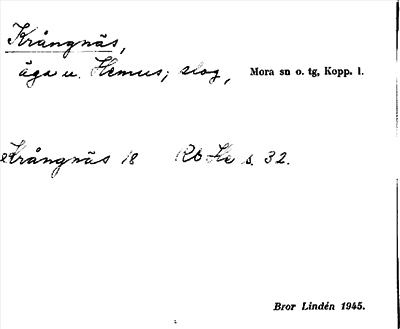 Krångnäs,
äga u. Hemus; skog, Mora sn o. tg, Kopp. l.
Krångnäs 18 Rb Ke s. 32.
Bror Lindén 1945.